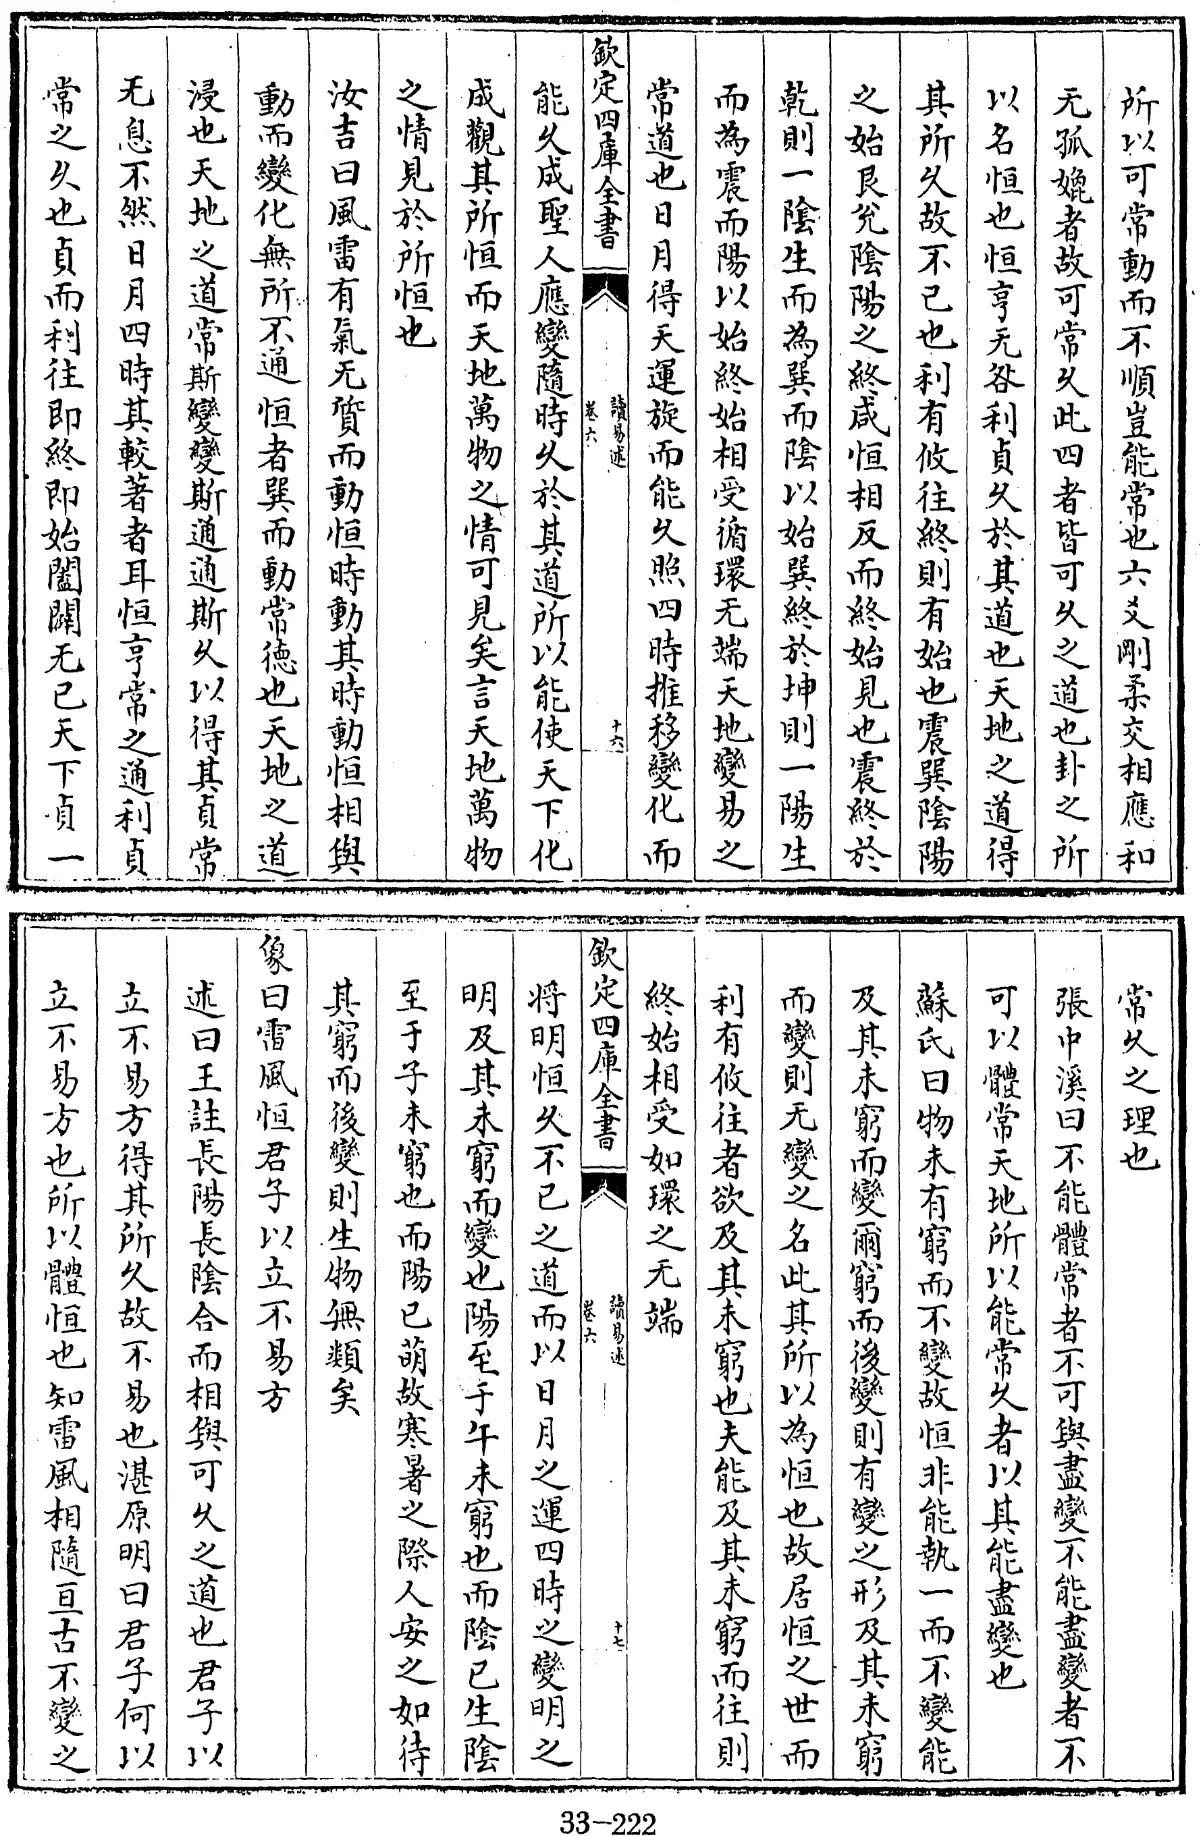 所以可常動而不順豈能常也六爻剛柔交相應和
无孤媲者故可常久此四者皆可久之道也卦之所
以名恒也恒亨无咎利貞久於其道也天地之道得
其所久故不已也利有攸往終則有始也震巽陰陽
之始艮兌陰陽之終咸恒相反而終始見也震終於
乾則一陰生而為巽而陰以始巽終於坤則一陽生
而為震而陽以始終始相受循環无端天地變易之
常道也日月得天運旋而能久照四時推移變化而
欽定四庫全書
讀易述
卷六
十六
能久成聖人應變隨時久於其道所以能使天下化
成觀其所恒而天地萬物之情可見矣言天地萬物
之情見於所恒也
汝吉曰風雷有氣无質而動恒時動其時動恒相與
動而變化無所不通恒者巽而動常德也天地之道
浸也天地之道常斯變變斯通通斯久以得其貞常
无息不然日月四時其較著者耳恒亨常之通利貞
常之久也貞而利往即終即始闔闢无已天下貞一
常久之理也
張中溪曰不能體常者不可與盡變不能盡變者不
可以體常天地所以能常久者以其能盡變也
蘇氏曰物未有窮而不變故恒非能執一而不變能
及其未窮而變爾窮而後變則有變之形及其未窮
而變則无變之名此其所以為恒也故居恒之世而
利有攸往者欲及其未窮也夫能及其未窮而往則
終始相受如環之无端
欽定四庫全書
讀易述
卷六
十七
將明恒久不已之道而以日月之運四時之變明之
明及其未窮而變也陽至于午未窮也而陰已生陰
至于子未窮也而陽已萌故寒暑之際人安之如待
其窮而後變則生物無類矣
象曰雷風恒君子以立不易方
述曰王註長陽長陰合而相與可久之道也君子以
立不易方得其所久故不易也湛原明曰君子何以
立不易方也所以體恒也知雷風相隨亘古不變之
33-222